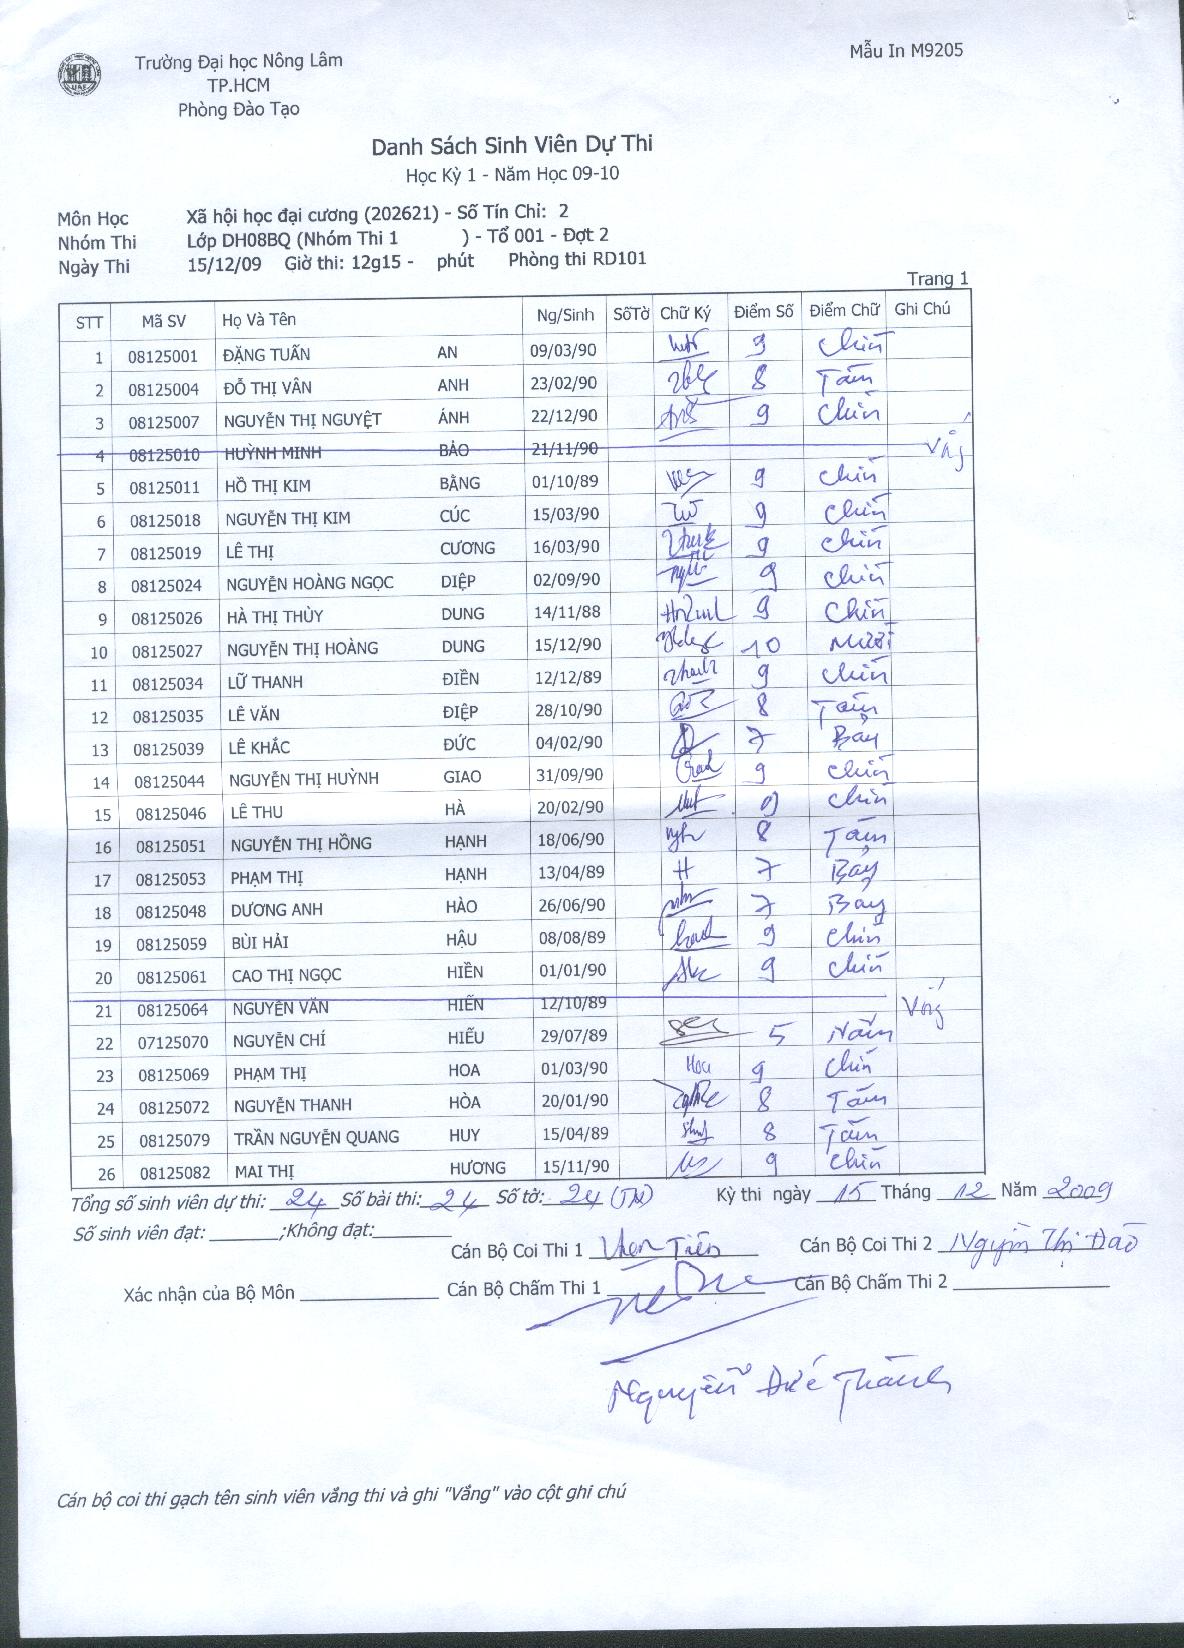 Trường Đại học Nông Lâm
TP.HCM
Phòng Đào Tạo
Mẫu In M9205
Danh Sách Sinh Viên Dự Thi
Học Kỳ 1 - Năm Học 09-10
Môn Học Xã hội học đại cương (202621) - Số Tín Chỉ: 2
Nhóm Thi Lớp DH08BQ (Nhóm Thi 1 ) - Tổ 001 - Đợt 2
Ngày Thi 15/12/09 Giờ thi: 12g15 - phút Phòng thi RD101
Trang 1
STT Mã SV Họ Và Tên Ng/Sinh SốTờ Chữ Ký Điểm Số Điểm Chữ Ghi Chú
1 08125001 ĐẶNG TUẤN AN 09/03/90 9 Chín
2 08125004 ĐỖ THỊ VÂN ANH 23/02/90 8 Tám
3 08125007 NGUYỄN THỊ NGUYỆT ÁNH 22/12/90 9 Chín
4 08125010 HUỲNH MINH BẢO 21/11/90 Vắng
5 08125011 HỒ THỊ KIM BẰNG 01/10/89 9 Chín
6 08125018 NGUYỄN THỊ KIM CÚC 15/03/90 9 Chín
7 08125019 LÊ THỊ CƯƠNG 16/03/90 9 Chín
8 08125024 NGUYỄN HOÀNG NGỌC DIỆP 02/09/90 9 Chín
9 08125026 HÀ THỊ THÙY DUNG 14/11/88 9 Chín
10 08125027 NGUYỄN THỊ HOÀNG DUNG 15/12/90 10 Mười
11 08125034 LỮ THANH ĐIỀN 12/12/89 9 Chín
12 08125035 LÊ VĂN ĐIỆP 28/10/90 8 Tám
13 08125039 LÊ KHẮC ĐỨC 04/02/90 7 Bảy
14 08125044 NGUYỄN THỊ HUỲNH GIAO 31/09/90 9 Chín
15 08125046 LÊ THU HÀ 20/02/90 9 Chín
16 08125051 NGUYỄN THỊ HỒNG HẠNH 18/06/90 8 Tám
17 08125053 PHẠM THỊ HẠNH 13/04/89 H 7 Bảy
18 08125048 DƯƠNG ANH HÀO 26/06/90 7 Bảy
19 08125059 BÙI HẢI HẬU 08/08/89 9 Chín
20 08125061 CAO THỊ NGỌC HIỀN 01/01/90 9 Chín
21 08125064 NGUYỄN VĂN HIẾN 12/10/89 Vắng
22 07125070 NGUYỄN CHÍ HIẾU 29/07/89 5 Năm
23 08125069 PHẠM THỊ HOA 01/03/90 Hoa 9 Chín
24 08125072 NGUYỄN THANH HÒA 20/01/90 8 Tám
25 08125079 TRẦN NGUYỄN QUANG HUY 15/04/89 8 Tám
26 08125082 MAI THỊ HƯƠNG 15/11/90 9 Chín
Tổng số sinh viên dự thi: 24 Số bài thi: 24 Số tờ: 24 (TN) Kỳ thi ngày 15 Tháng 12 Năm 2009
Số sinh viên đạt: ;Không đạt:
Cán Bộ Coi Thi 1 Tiến Cán Bộ Coi Thi 2 Nguyễn Thị Đào
Xác nhận của Bộ Môn Cán Bộ Chấm Thi 1 Cán Bộ Chấm Thi 2
Nguyễn Đức Thành
Cán bộ coi thi gạch tên sinh viên vắng thi và ghi "Vắng" vào cột ghi chú